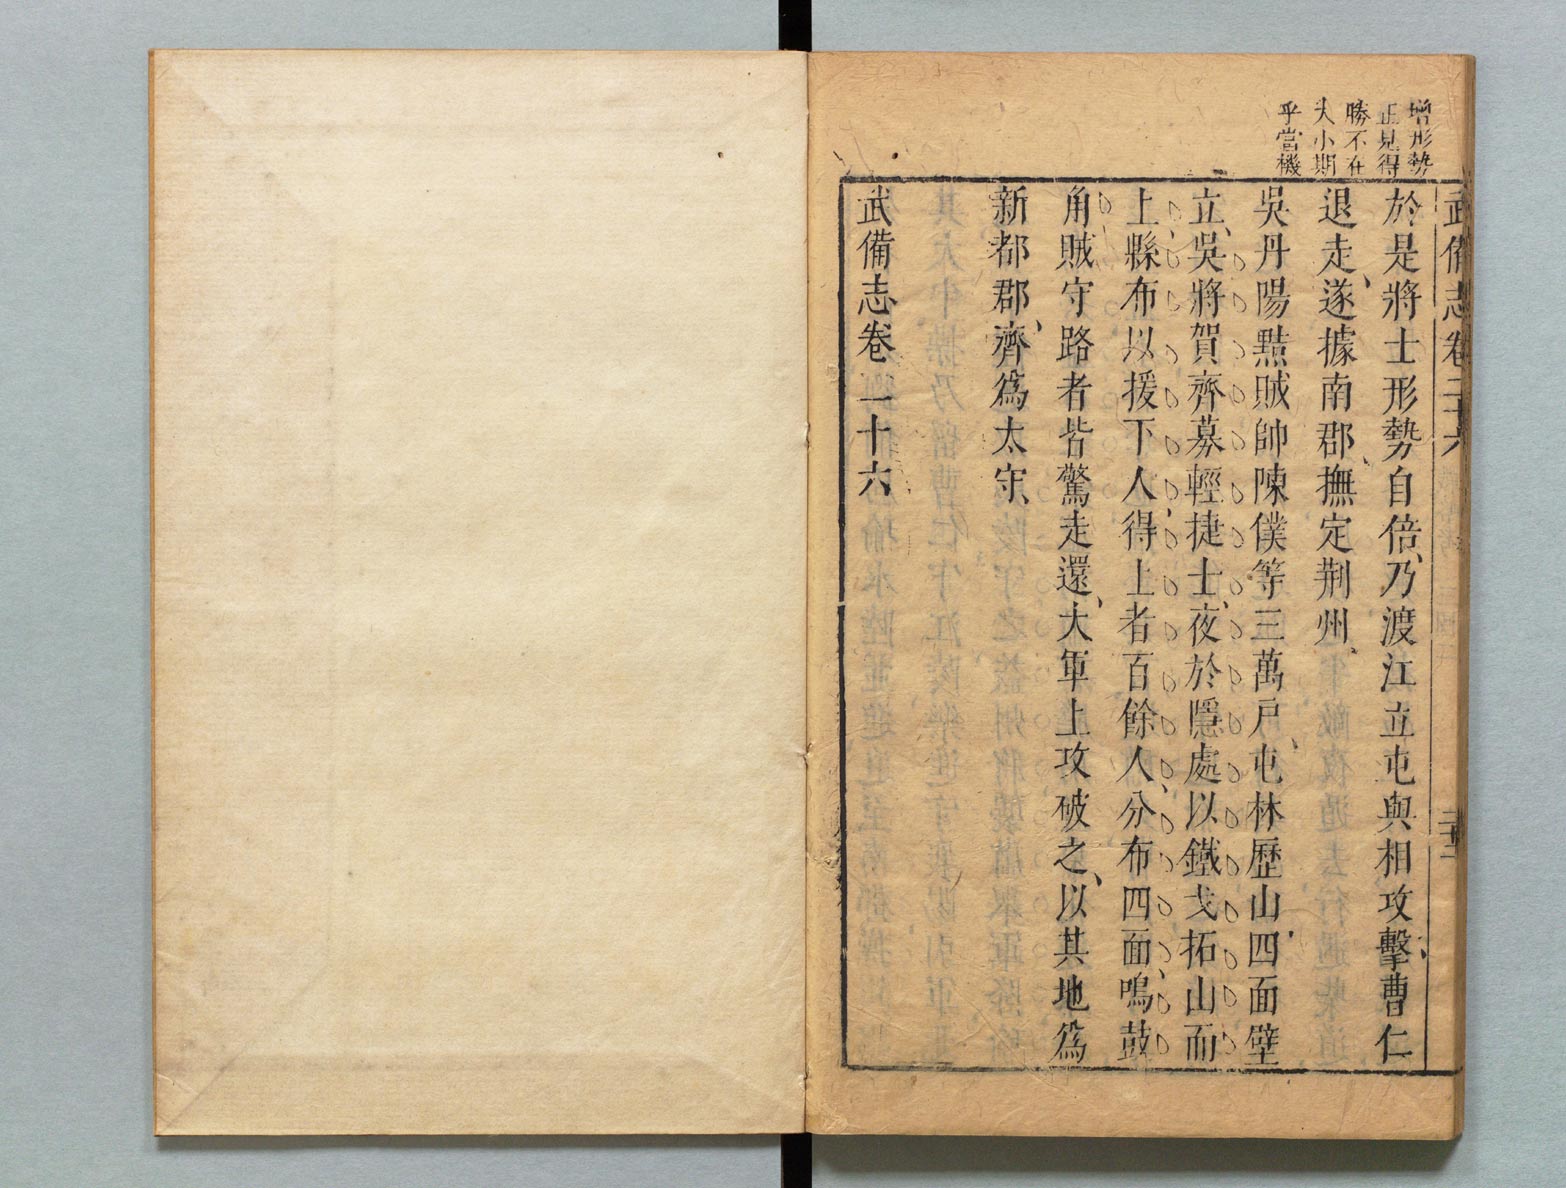 武備志卷二十六
增形勢
正見得
勝不在
大小期
乎當機
於是將士形勢自倍、乃渡江立屯與相攻擊、曹仁
退走、遂據南郡、撫定荆州、
吳丹陽黟賊帥陳僕等三萬戶、屯林歷山、四面壁
立、吳將賀齊募輕捷士、夜於隱處以鐵戈拓山而
上、縣布以援下人、得上者百餘人、分布四面、鳴鼓
角、賊守路者皆驚走還、大軍上攻破之、以其地爲
新都郡、齊爲太守、
武備志卷二十六